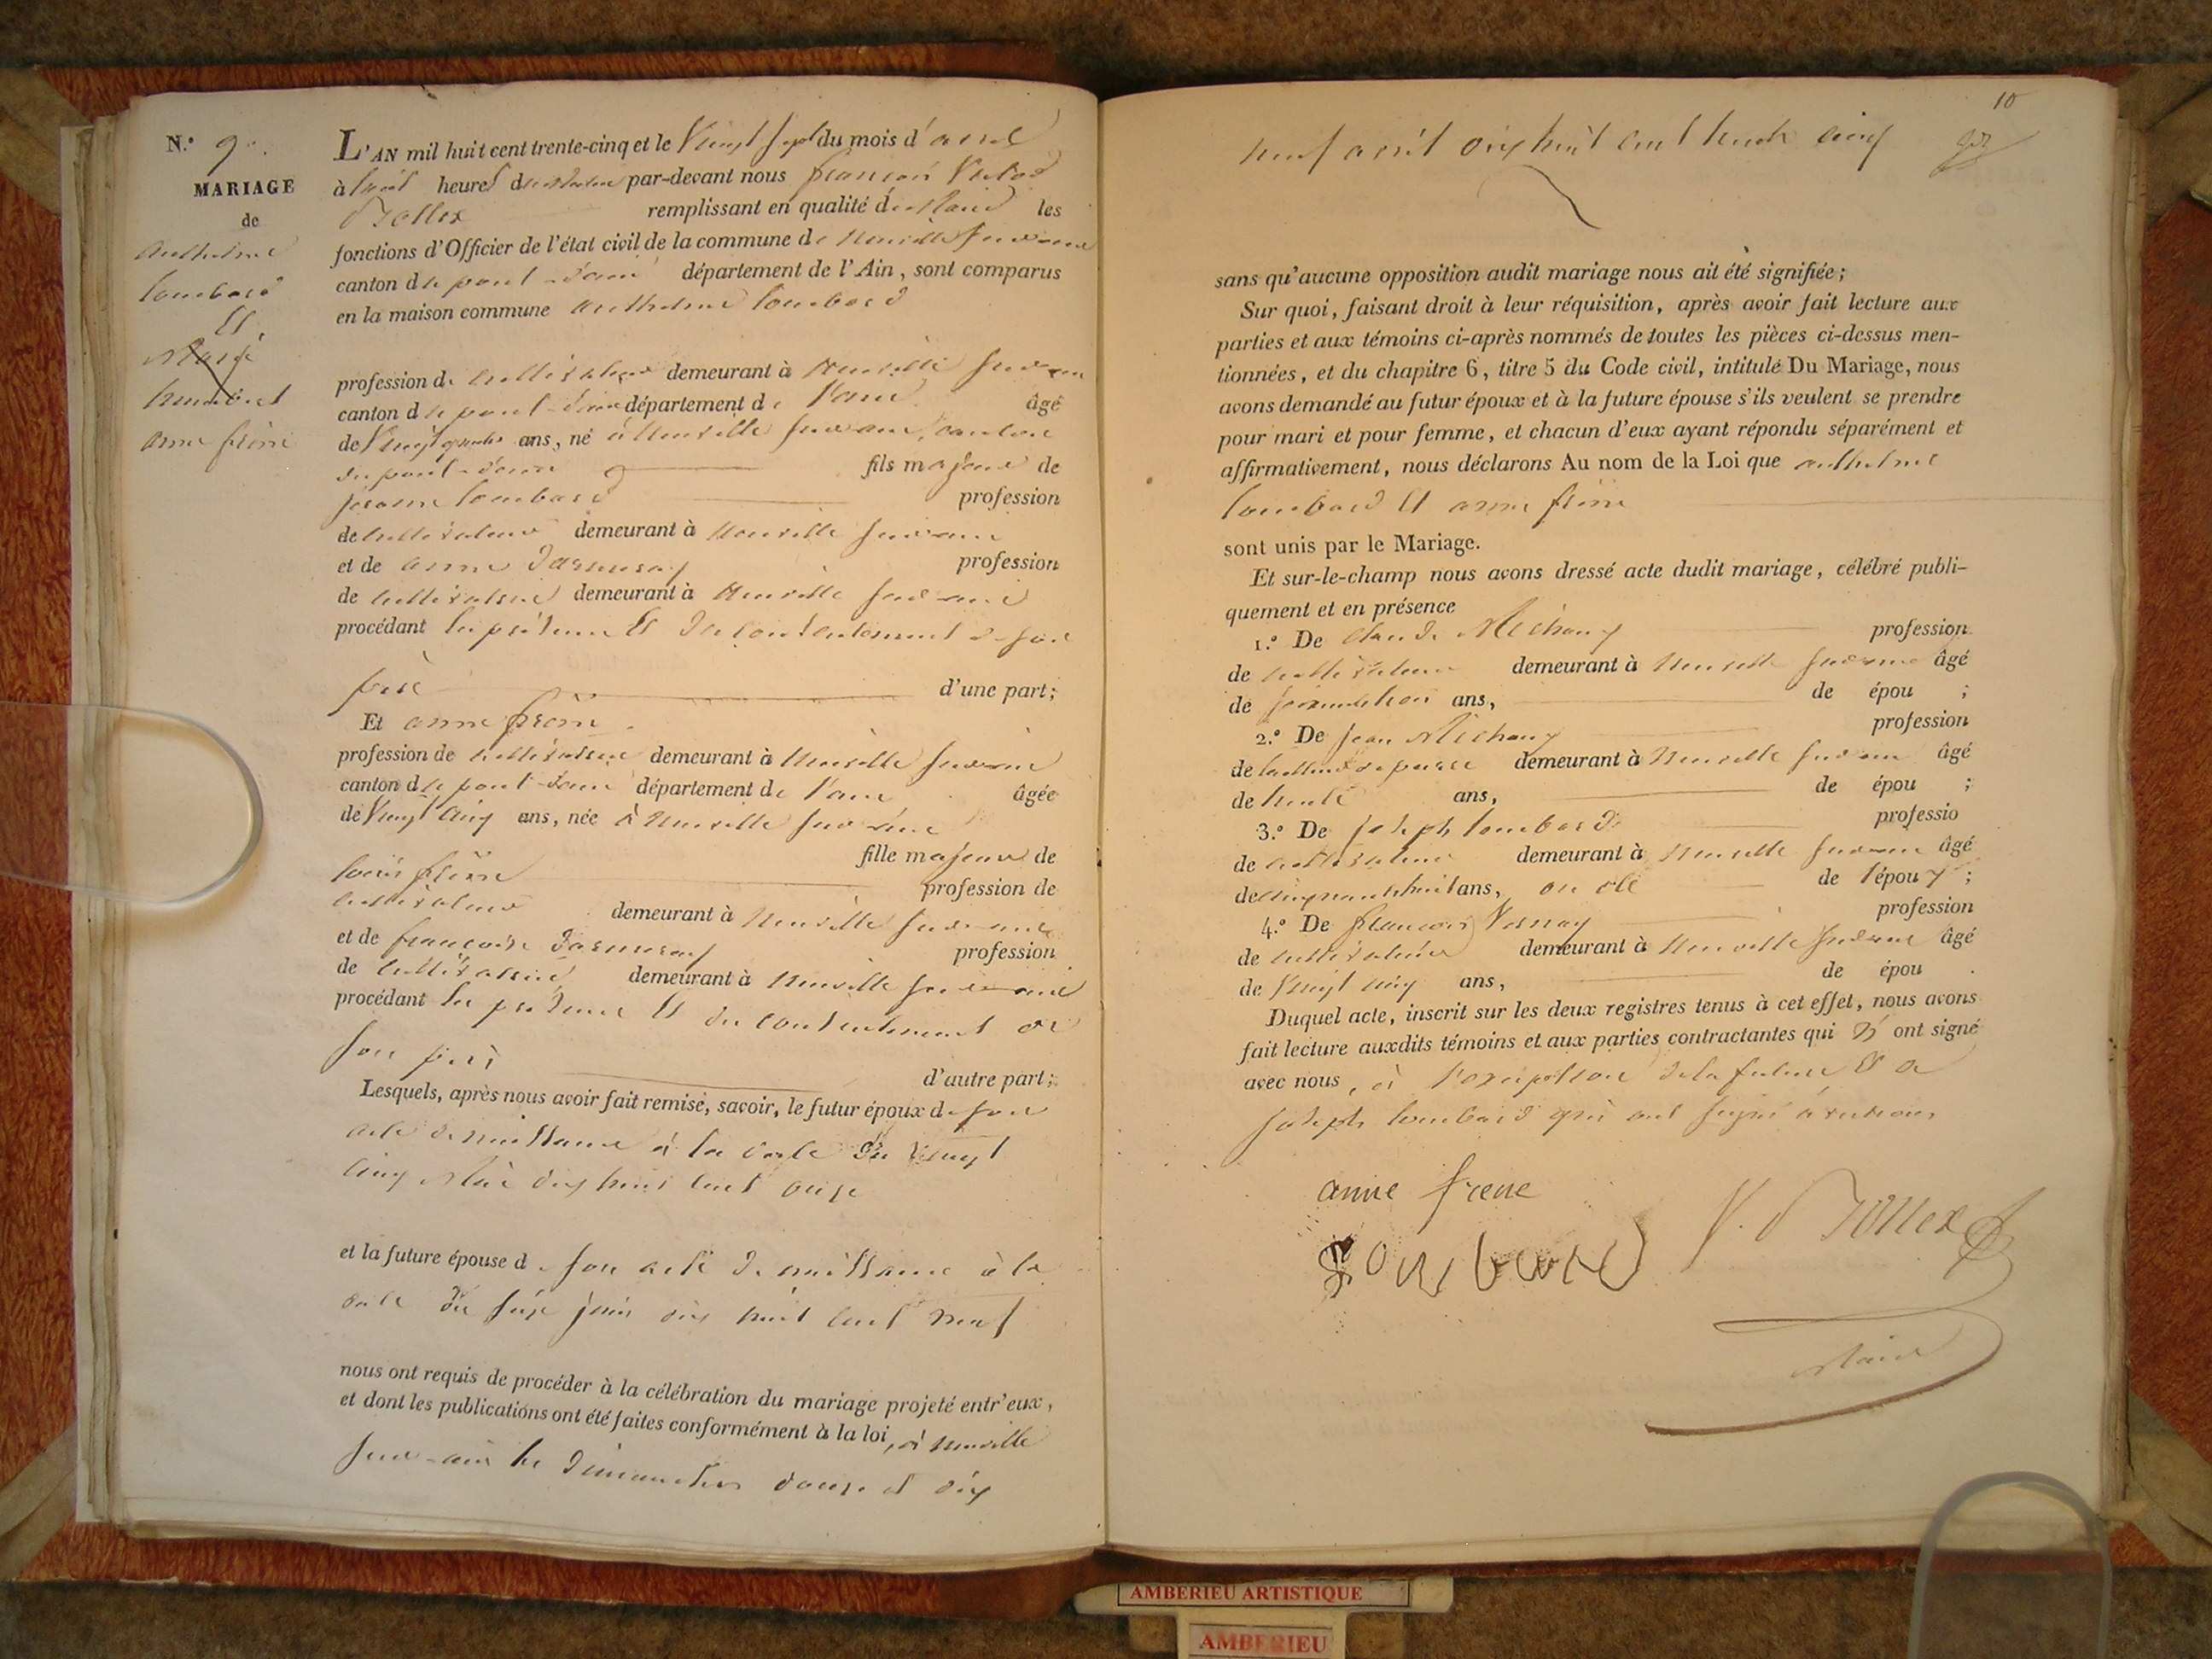 N.º 9.
MARIAGE
de
anthelme
lombard
Et
Marie
anne frêne
L'AN mil huit cent trente-cinq et le Vingt sept du mois d'avril
à huit heures du matin par-devant nous françois Victor
Bollex remplissant en qualité de Maire les
fonctions d'Officier de l'état civil de la commune de Neuville sur ain
canton de pont-d'ain département de l'Ain, sont comparus
en la maison commune anthelme lombard
profession de cultivateur demeurant à Neuville sur ain
canton de pont-d'ain département de l'ain âgé
de Vingt quatre ans, né à Neuville sur ain, canton
du pont-d'ain fils majeur de
lombard profession
de cultivateur demeurant à Neuville sur ain
et de anne profession
de cultivatrice demeurant à Neuville sur ain
procédant du consentement de son
père d'une part;
Et anne frêne
profession de cultivatrice demeurant à Neuville sur ain
canton de pont-d'ain département de l'ain âgée
de Vingt cinq ans, née à Neuville sur ain
fille majeure de
louis frêne profession de
cultivateur demeurant à Neuville sur ain
et de françoise profession
de cultivatrice demeurant à Neuville sur ain
procédant du consentement de
son père d'autre part;
Lesquels, après nous avoir fait remise, savoir, le futur époux de son
acte de naissance à la date du vingt
cinq Mai dix huit cent onze
et la future épouse de son acte de naissance à la
date du seize juin dix huit cent neuf
nous ont requis de procéder à la célébration du mariage projeté entr'eux,
et dont les publications ont été faites conformément à la loi, à neuville
sur-ain les dimanches douze et dix
10
neuf avril dix huit cent trente cinq
sans qu'aucune opposition audit mariage nous ait été signifiée;
Sur quoi, faisant droit à leur réquisition, après avoir fait lecture aux
parties et aux témoins ci-après nommés de toutes les pièces ci-dessus men-
tionnées, et du chapitre 6, titre 5 du Code civil, intitulé Du Mariage, nous
avons demandé au futur époux et à la future épouse s'ils veulent se prendre
pour mari et pour femme, et chacun d'eux ayant répondu séparément et
affirmativement, nous déclarons Au nom de la Loi que anthelme
lombard et anne frêne
sont unis par le Mariage.
Et sur-le-champ nous avons dressé acte dudit mariage, célébré publi-
quement et en présence
1.º De claude Michoux profession
de cultivateur demeurant à Neuville sur ain âgé
de ans, de épou ;
2.º De jean Michoux profession
de demeurant à Neuville sur ain âgé
de trente ans, de épou ;
3.º De joseph lombard professio
de cultivateur demeurant à Neuville sur ain âgé
de cinquante huit ans, oncle de l'époux ;
4.º De françois profession
de cultivateur demeurant à Neuville sur ain âgé
de Vingt cinq ans, de épou .
Duquel acte, inscrit sur les deux registres tenus à cet effet, nous avons
fait lecture auxdits témoins et aux parties contractantes qui n' ont signé
avec nous, à l'exception de la future et de
joseph lombard qui ont signé avec nous
anne frene
Lombard
V. Bollex
Maire
AMBERIEU ARTISTIQUE
AMBERIEU